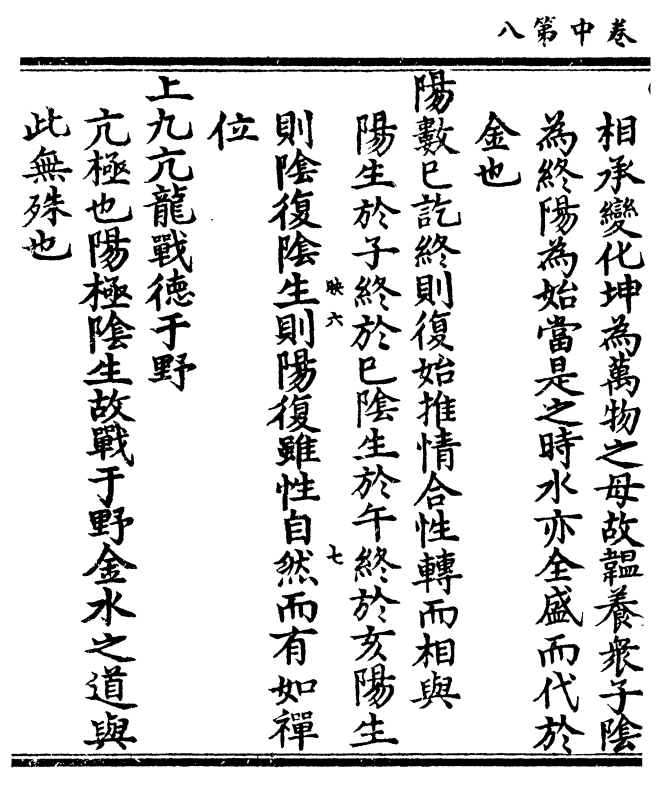 卷中第八
相承變化坤為萬物之母故韞養衆子陰
為終陽為始當是之時水亦全盛而代於
金也
陽數巳訖終則復始推情合性轉而相與
陽生於子終於巳陰生於午終於亥陽生
映六
七
則陰復陰生則陽復雖性自然而有如禪
位
上九亢龍戰德于野
亢極也陽極陰生故戰于野金水之道與
此無殊也